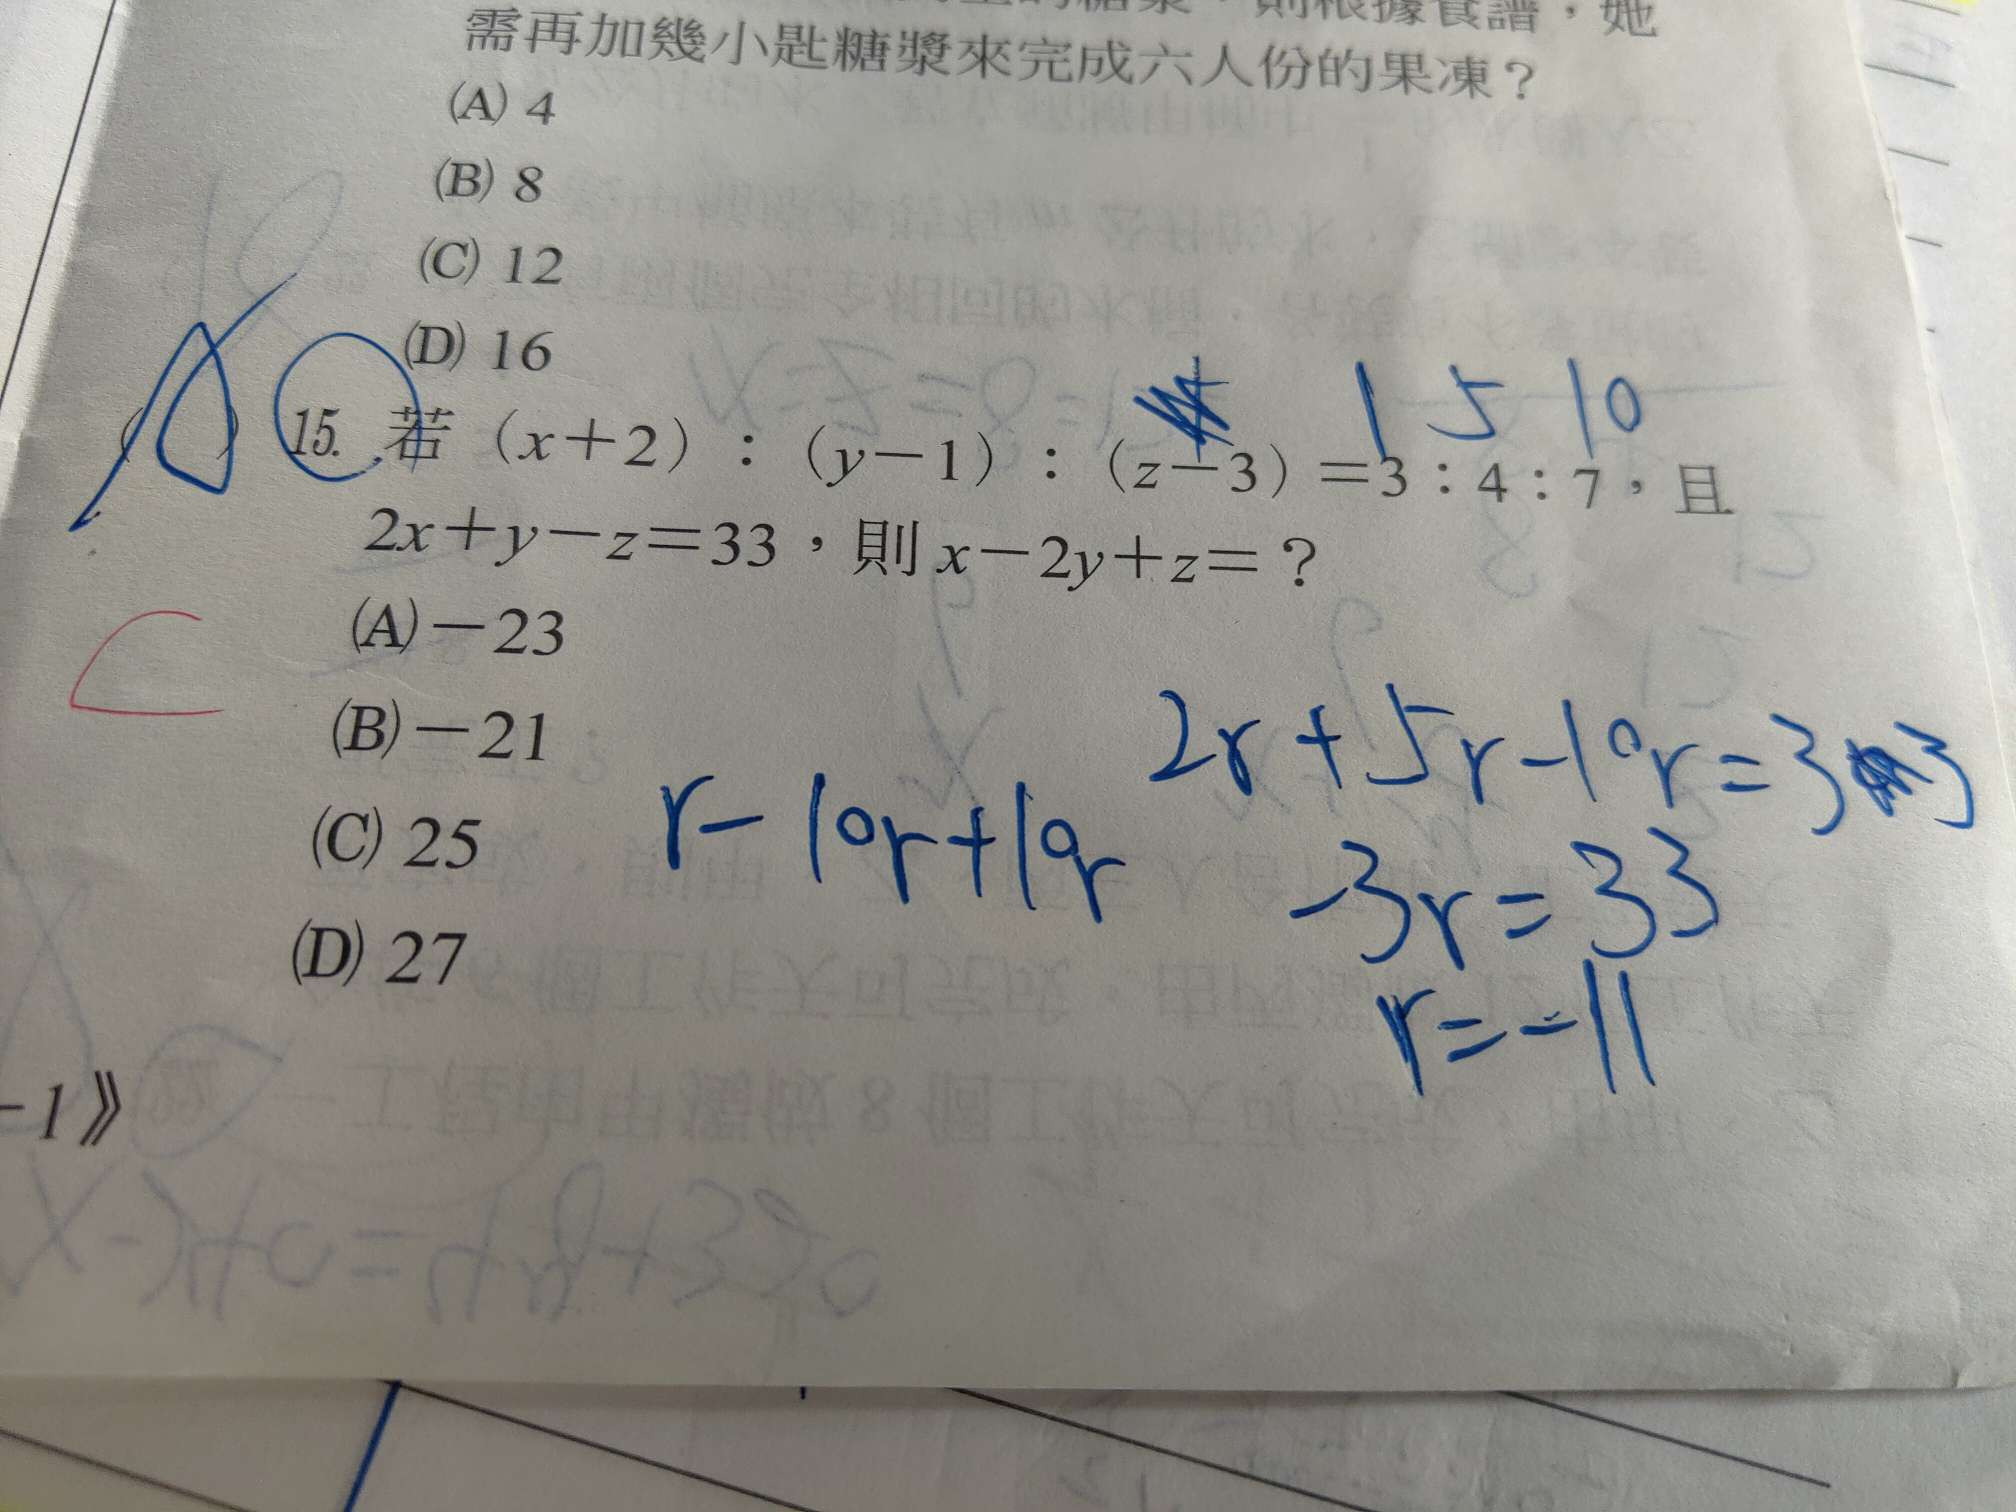 糖漿，則根據食譜，她
需再加幾小匙糖漿來完成六人份的果凍？
(A) 4
(B) 8
(C) 12
(D) 16
1 5 10
( ) 15. 若（x＋2）：（y－1）：（z－3）＝3：4：7，且
2x＋y－z＝33，則 x－2y＋z＝？
(A)－23
C
(B)－21
2r+5r-10r=33
(C) 25
r-10r+10r
-3r=33
(D) 27
r=-11
-1》